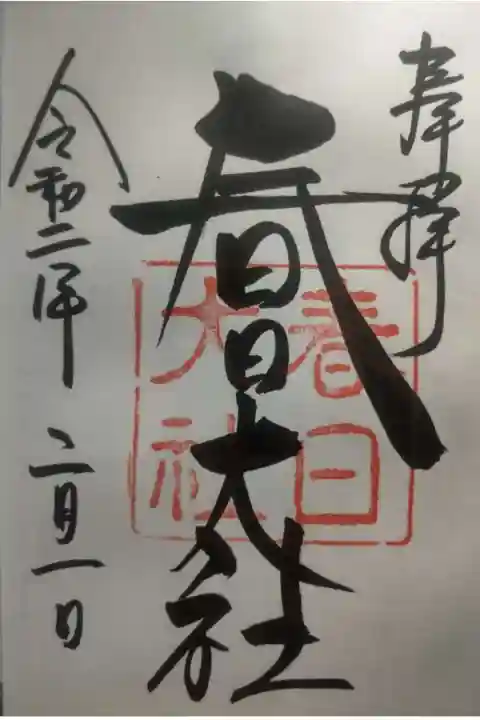 奉拝
春日大社
春日
大社
令和二年 二月一日